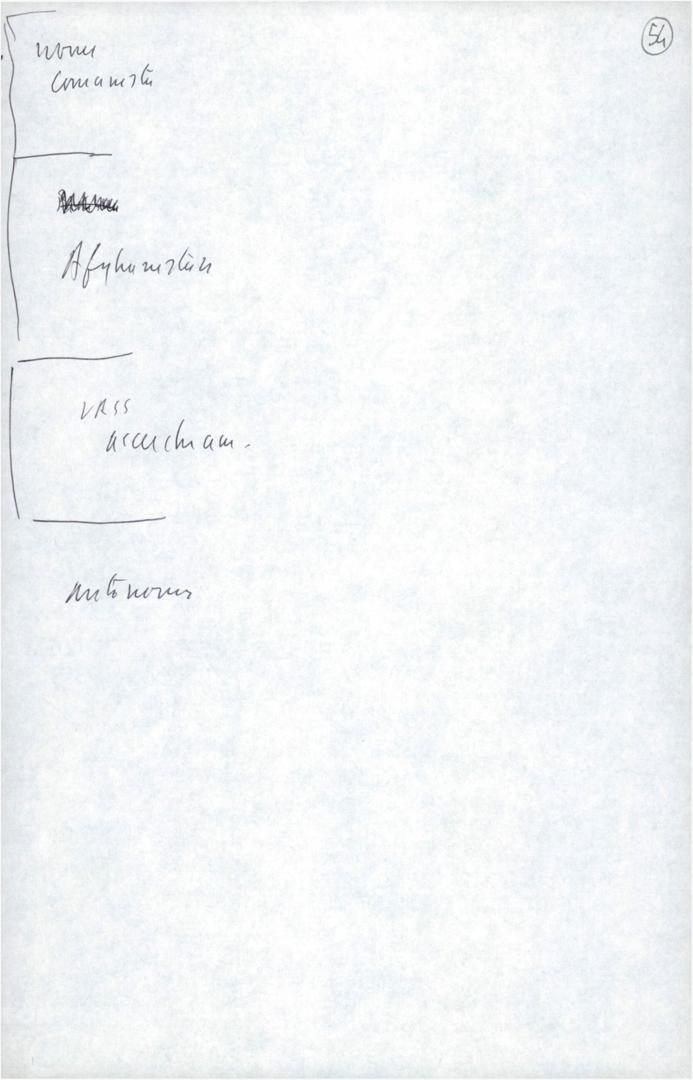 54
nome
comunista
Afghanistan
URSS
accerchiam.
autonomia